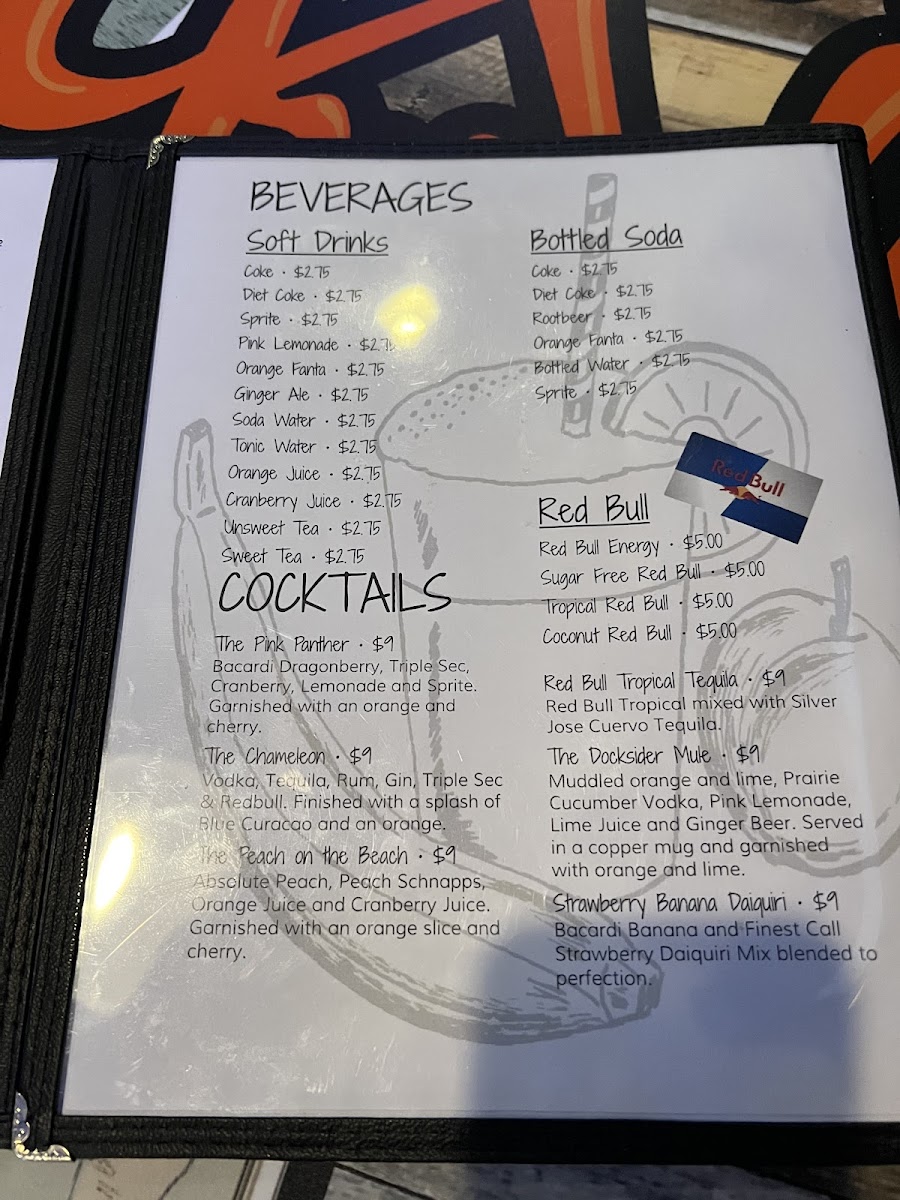 BEVERAGES
Soft Drinks
Coke · $2.75
Diet Coke · $2.75
Sprite · $2.75
Pink Lemonade · $2.75
Orange Fanta · $2.75
Ginger Ale · $2.75
Soda Water · $2.75
Tonic Water · $2.75
Orange Juice · $2.75
Cranberry Juice · $2.75
Unsweet Tea · $2.75
Sweet Tea · $2.75
COCKTAILS
The Pink Panther · $9
Bacardi Dragonberry, Triple Sec,
Cranberry, Lemonade and Sprite.
Garnished with an orange and
cherry.
The Chameleon · $9
Vodka, Tequila, Rum, Gin, Triple Sec
& Redbull. Finished with a splash of
Blue Curacao and an orange.
The Peach on the Beach · $9
Absolute Peach, Peach Schnapps,
Orange Juice and Cranberry Juice.
Garnished with an orange slice and
cherry.
Bottled Soda
Coke · $2.75
Diet Coke · $2.75
Rootbeer · $2.75
Orange Fanta · $2.75
Bottled Water · $2.75
Sprite · $2.75
Red Bull
Red Bull
Red Bull Energy · $5.00
Sugar Free Red Bull · $5.00
Tropical Red Bull · $5.00
Coconut Red Bull · $5.00
Red Bull Tropical Tequila · $9
Red Bull Tropical mixed with Silver
Jose Cuervo Tequila.
The Docksider Mule · $9
Muddled orange and lime, Prairie
Cucumber Vodka, Pink Lemonade,
Lime Juice and Ginger Beer. Served
in a copper mug and garnished
with orange and lime.
Strawberry Banana Daiquiri · $9
Bacardi Banana and Finest Call
Strawberry Daiquiri Mix blended to
perfection.